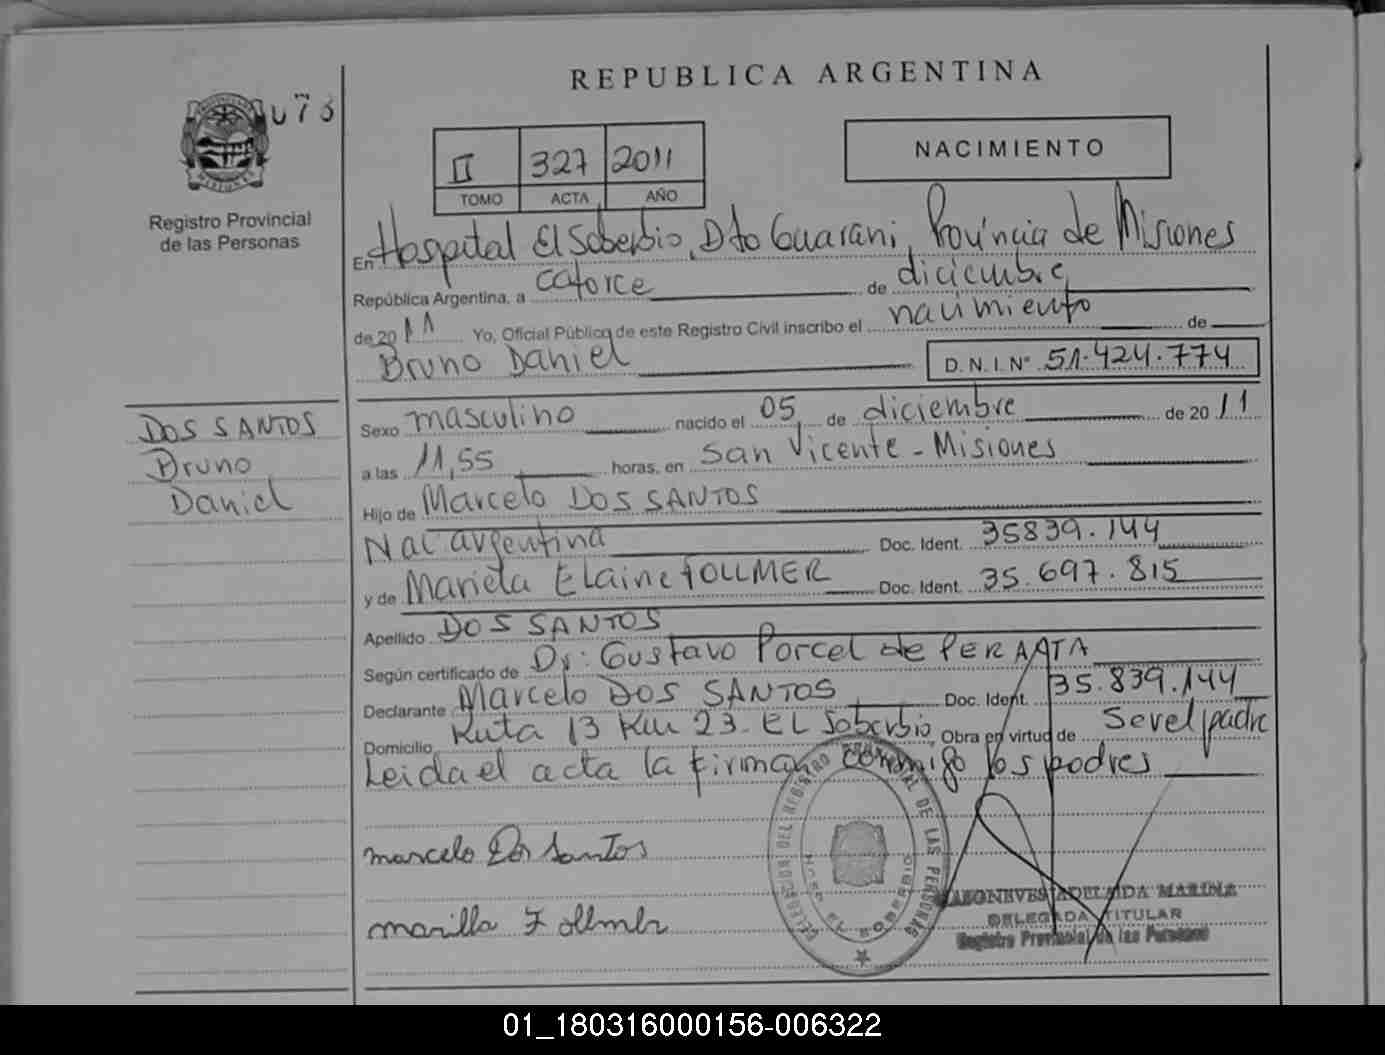 REPUBLICA ARGENTINA
073
II 327 2011
TOMO ACTA AÑO
NACIMIENTO
Registro Provincial
de las Personas
En Hospital El Soberbio, Dto Guarani, Província de Misiones
República Argentina, a catorce de diciembre
de 2011 Yo, Oficial Público de este Registro Civil inscribo el nacimiento de
Bruno Daniel D.N.I. Nº 51.424.774
DOS SANTOS
Bruno
Daniel
Sexo masculino nacido el 05 de diciembre de 2011
a las 11,55 horas, en San Vicente - Misiones
Hijo de Marcelo DOS SANTOS
Nac argentina Doc. Ident. 35839.144
y de Mariela Elaine FOLLMER Doc. Ident. 35.697.815
Apellido DOS SANTOS
Según certificado de Dr: Gustavo Porcel de PERALTA
Declarante Marcelo DOS SANTOS Doc. Ident. 35.839.144
Domicilio Ruta 13 Km 23. EL Soberbio, Obra en virtud de Ser el padre
Leida el acta la firman conmigo los padres
marcelo Dos Santos
marilla Follmer
DELEGACION DEL REGISTRO PROVINCIAL DE LAS PERSONAS
EL SOBERBIO
ADELAIDA MARINA
DELEGADA TITULAR
Registro Provincial de las Personas
01_180316000156-006322